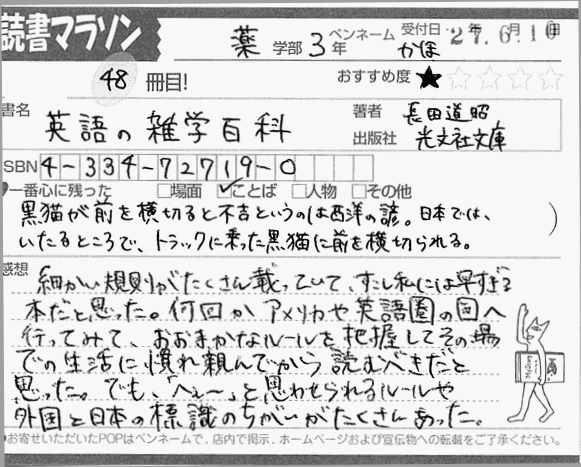 読書マラソン
薬 学部 3年 ペンネーム かほ 受付日 27.6.10
48 冊目!
おすすめ度 ★☆☆☆☆
書名 英語の雑学百科
著者 長田道昭
出版社 光文社文庫
ISBN 4-334-72719-0
一番心に残った □場面 ☑ことば □人物 □その他
黒猫が前を横切ると不吉というのは西洋の諺。日本では、
いたるところで、トラックに乗った黒猫に前を横切られる。
感想
細かい規則がたくさん載っていて、すこし私には早すぎる
本だと思った。何回かアメリカや英語圏の国へ
行ってみて、おおまかなルールを把握してその場
での生活に慣れ親んでから読むべきだと
思った。でも、「へぇ〜」と思わせられるルールや
外国と日本の標識のちがいがたくさんあった。
お寄せいただいたPOPはペンネームで、店内で掲示、ホームページおよび宣伝物への転載をご了承ください。